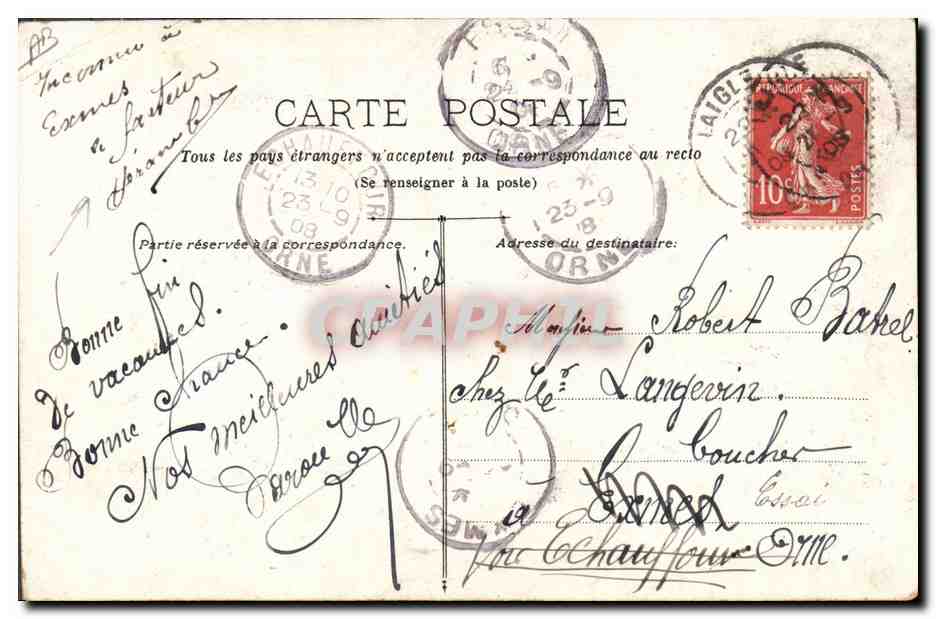 AB
Inconnu à
Exmes
le facteur
CARTE POSTALE
Tous les pays étrangers n'acceptent pas la correspondance au recto
(Se renseigner à la poste)
Partie réservée à la correspondance.
Adresse du destinataire:
ORNE
13 10
23 - 9
08
ORNE
23 - 9
08
ORNE
LAIGLE
RÉPUBLIQUE FRANÇAISE
10c
POSTES
Bonne fin
De vacances.
Bonne chance.
Nos meilleures amitiés
Monsieur Robert Batrel
chez Mr Langevin.
Boucher
à Exmes Essai
par Echauffour Orne.
MES
CPAPHIL